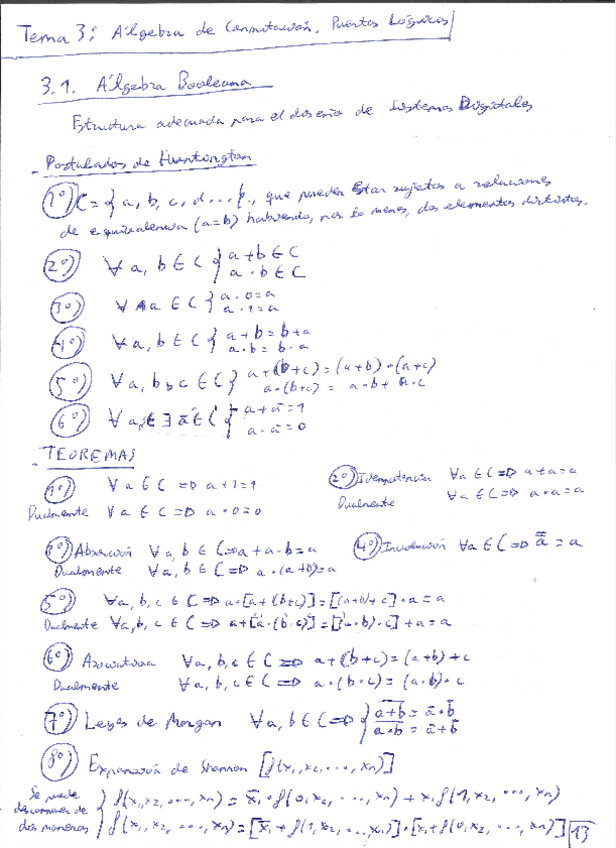 Tema 3: Álgebra de Conmutación. Puertas Lógicas
3.1. Álgebra Booleana
Estructura adecuada para el diseño de Sistemas Digitales
- Postulados de Huntington
1º) C = { a, b, c, d... }, que pueden estar sujetos a relaciones
de equivalencia (a=b) habiendo, por lo menos, dos elementos distintos.
2º) ∀ a, b ∈ C { a + b ∈ C
a · b ∈ C
3º) ∀ a ∈ C { a · 0 = a
a · 1 = a
4º) ∀ a, b ∈ C { a + b = b + a
a · b = b · a
5º) ∀ a, b, c ∈ C } a + (b + c) = (a + b) · (a + c)
a · (b + c) = a · b + a · c
6º) ∀ a, ∈ ∃ ā ∈ C { a + ā = 1
a · ā = 0
- TEOREMAS
1º) ∀ a ∈ C => a + 1 = 1
Dualmente ∀ a ∈ C => a · 0 = 0
2º) Idempotencia ∀ a ∈ C => a + a = a
Dualmente ∀ a ∈ C => a · a = a
3º) Absorción ∀ a, b ∈ C => a + a · b = a
Dualmente ∀ a, b ∈ C => a · (a + b) = a
4º) Involución ∀ a ∈ C => a̿ = a
5º) ∀ a, b, c ∈ C => a · [a + (b + c)] = [(a + b) + c] · a = a
Dualmente ∀ a, b, c ∈ C => a + [a · (b · c)] = [(a · b) · c] + a = a
6º) Asociativa ∀ a, b, c ∈ C => a + (b + c) = (a + b) + c
Dualmente ∀ a, b, c ∈ C => a · (b · c) = (a · b) · c
7º) Leyes de Morgan ∀ a, b ∈ C => { a̅+̅b̅ = ā · b̄
a̅·̅b̅ = ā + b̄
8º) Expansión de Shannon [f(x₁, x₂, ..., xₙ)]
Se puede
descomponer de
dos maneras
{ f(x₁, x₂, ..., xₙ) = x̄₁ · f(0, x₂, ..., xₙ) + x₁ f(1, x₂, ..., xₙ)
f(x₁, x₂, ..., xₙ) = [x̄₁ + f(1, x₂, ..., xₙ)] · [x₁ + f(0, x₂, ..., xₙ)]
13